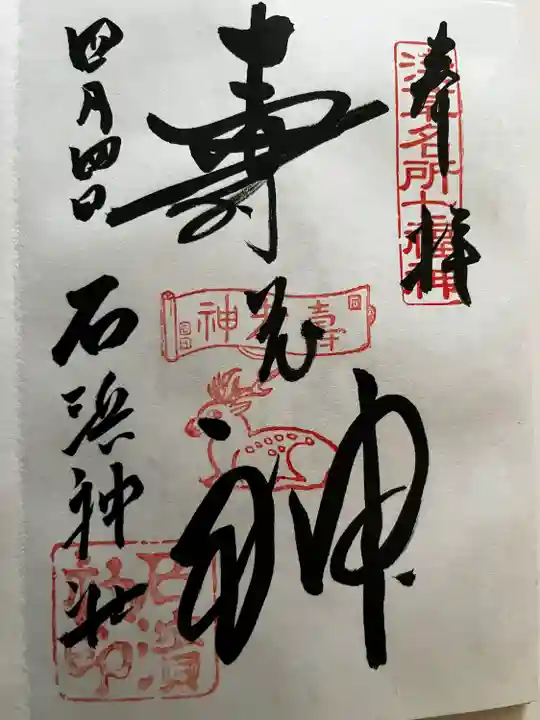 奉拝
浅草名所七福神
寿老神
寿老神
四月四日
石浜神社
石濱神社印